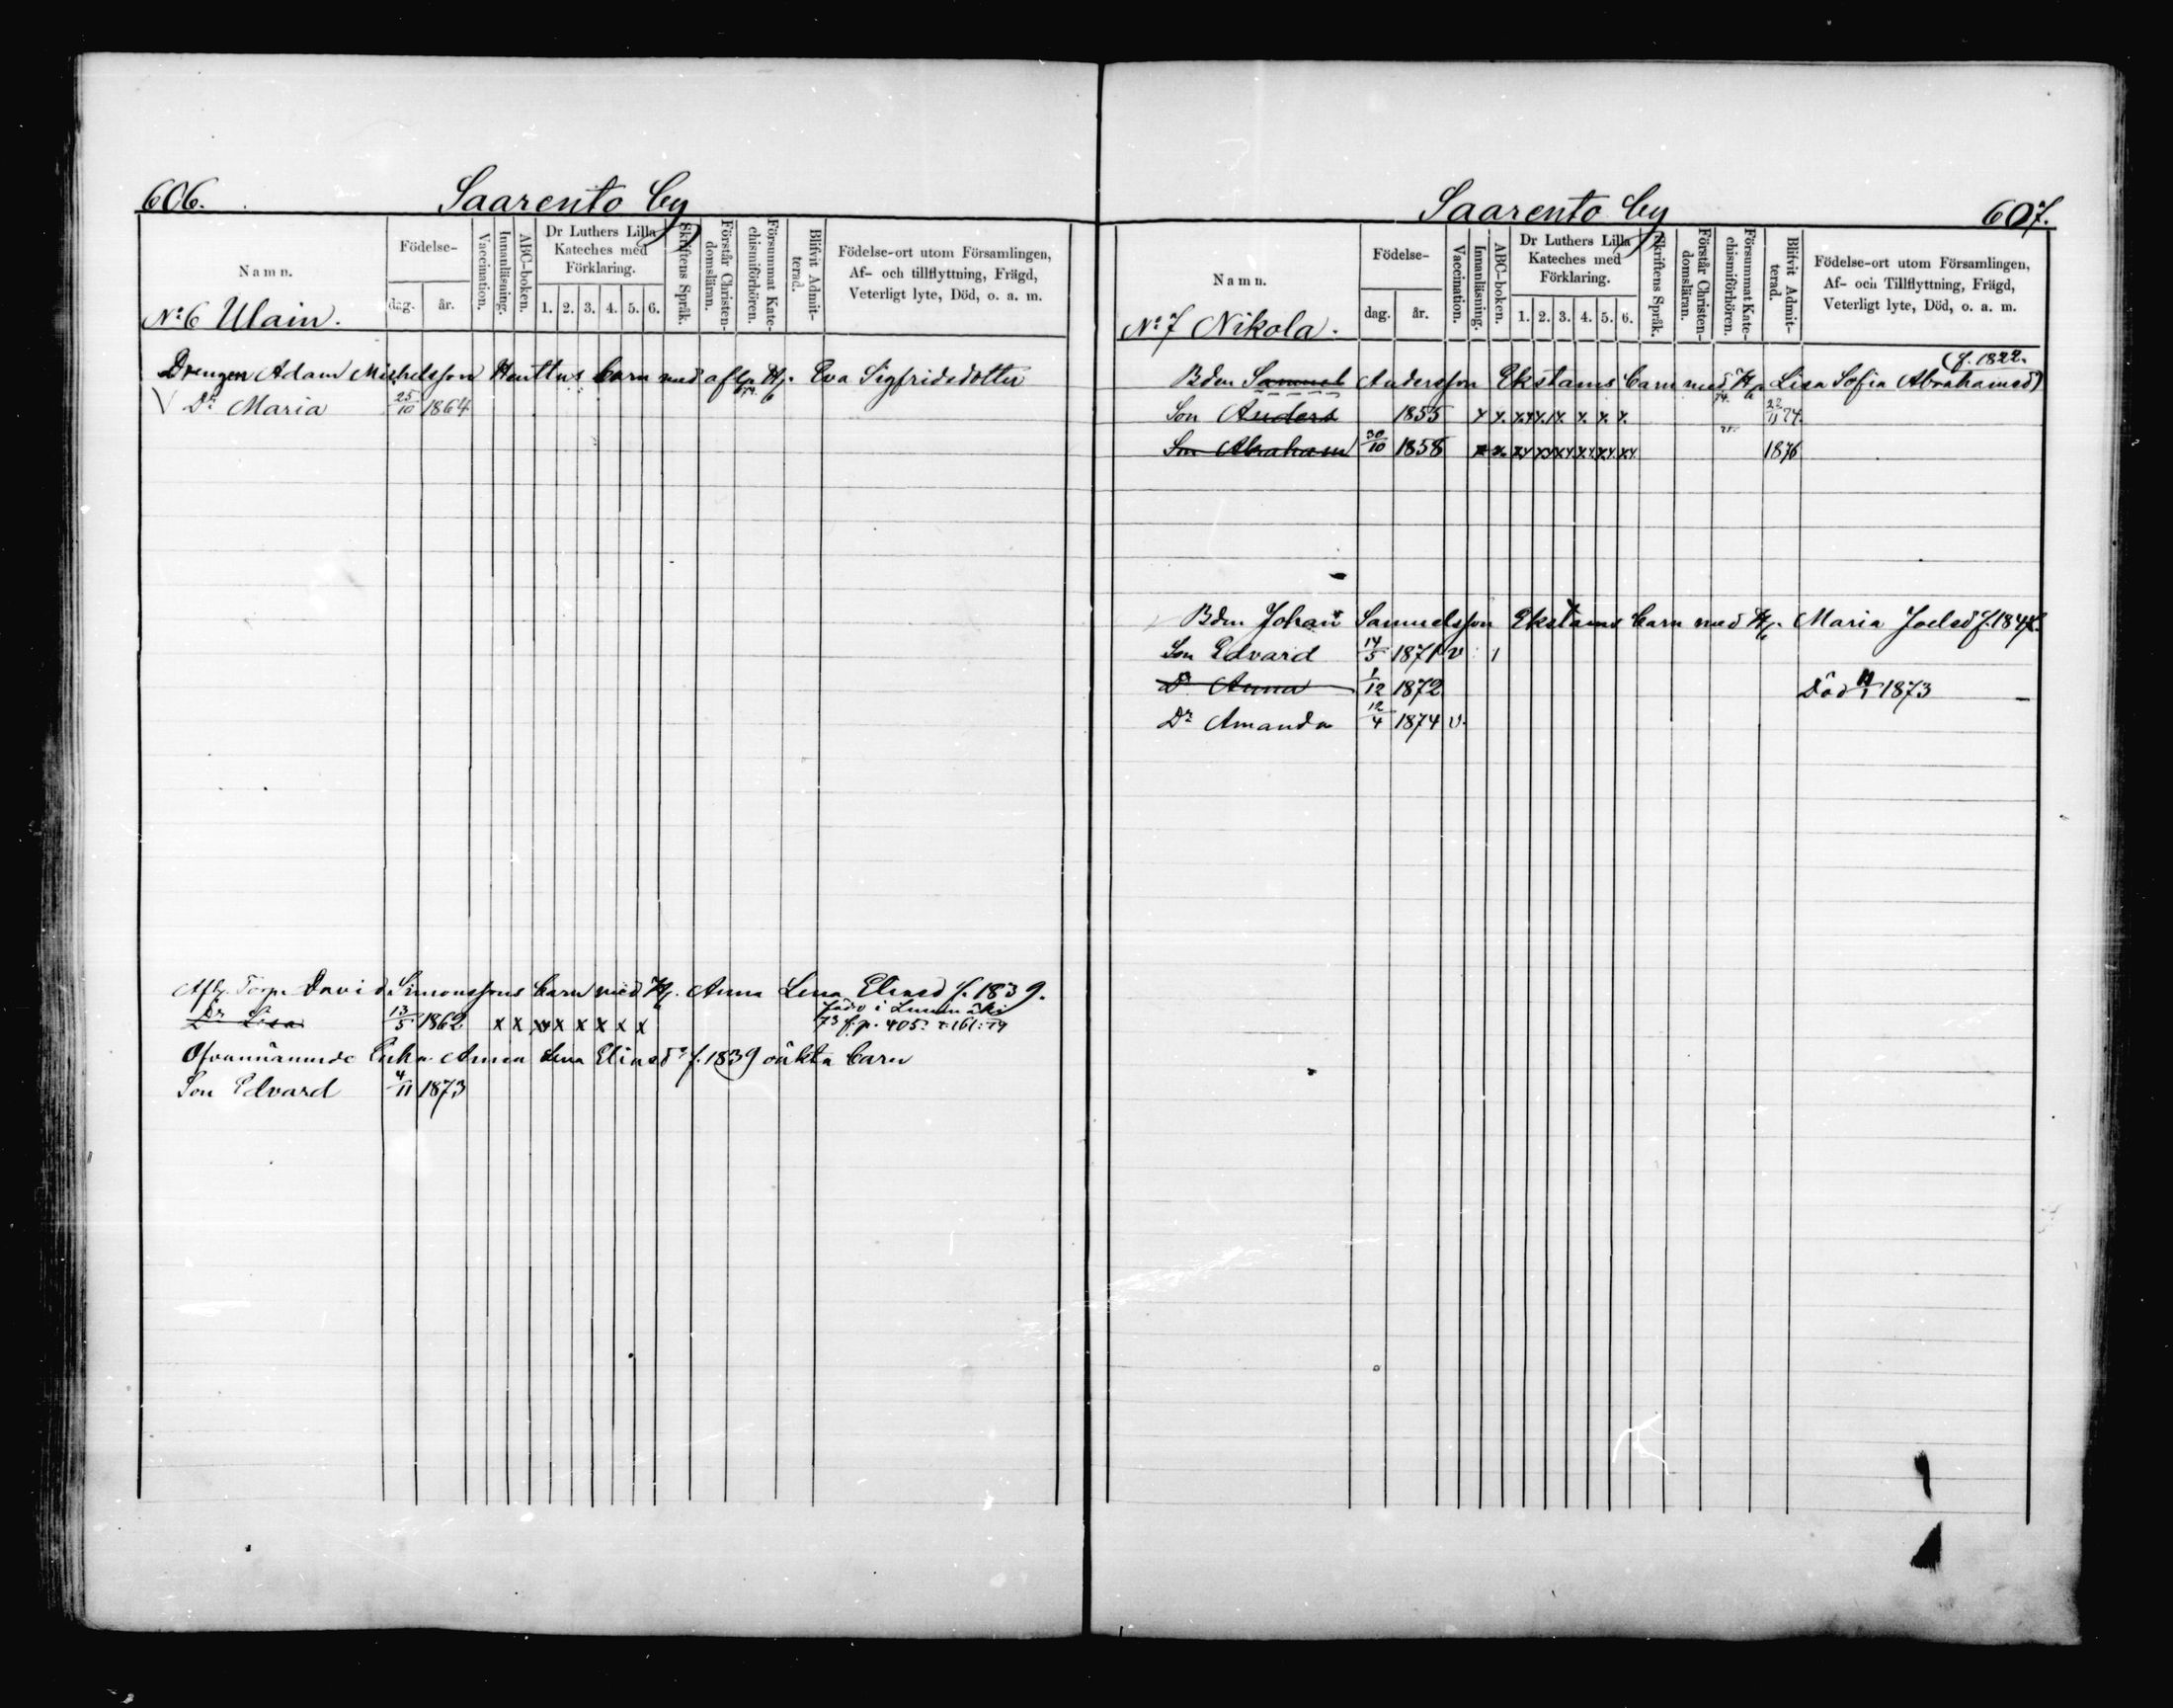 606.
Saarento by
Namn.
Födelse-
dag.
år.
Vaccination.
Innanläsning.
ABC-boken.
Dr Luthers Lilla
Kateches med
Förklaring.
1. 2. 3. 4. 5. 6.
Skriftens Språk.
Förstår Christen-
domsläran.
Försummat Kate-
chismiförhören.
Blifvit Admit-
terad.
Födelse-ort utom Församlingen,
Af- och tillflyttning, Frägd,
Veterligt lyte, Död, o. a. m.
No 6 Ulain.
Drengen Adam Michelsson Henttus barn med afl. H. Eva Sigfridsdotter
V Dr Maria 25/10 1864
Afl. Torp. David Simonssons barn med H. Anna Lena Eliasd f. 1839.
Dr Lisa 13/5 1862 x x x x x x x x
73 f. p. 405.
Ofvannämnde Enka Anna Lena Eliasdr f. 1839 oäkta barn
Son Edvard 4/11 1873
Saarento by
607.
Namn.
Födelse-
dag.
år.
Vaccination.
Innanläsning.
ABC-boken.
Dr Luthers Lilla
Kateches med
Förklaring.
1. 2. 3. 4. 5. 6.
Skriftens Språk.
Förstår Christen-
domsläran.
Försummat Kate-
chismiförhören.
Blifvit Admit-
terad.
Födelse-ort utom Församlingen,
Af- och Tillflyttning, Frägd,
Veterligt lyte, Död, o. a. m.
No 7 Nikola.
(f. 1822.
Bdn Samuel Andersson Ekstams barn med H. Lisa Sofia Abrahamsd)
Son Anders 1855 x x. x x x x. x. x. 74.
Son Abraham 30/10 1858 x x. xx xx xx xx xx xx 1876
Bdn Johan Samuelsson Ekstams barn med H. Maria Joelsd f. 1847.
Son Edvard 14/5 1871 v 1
Dr Anna 1/12 1872 Död 11/1 1873
Dr Amanda 12/4 1874 v.